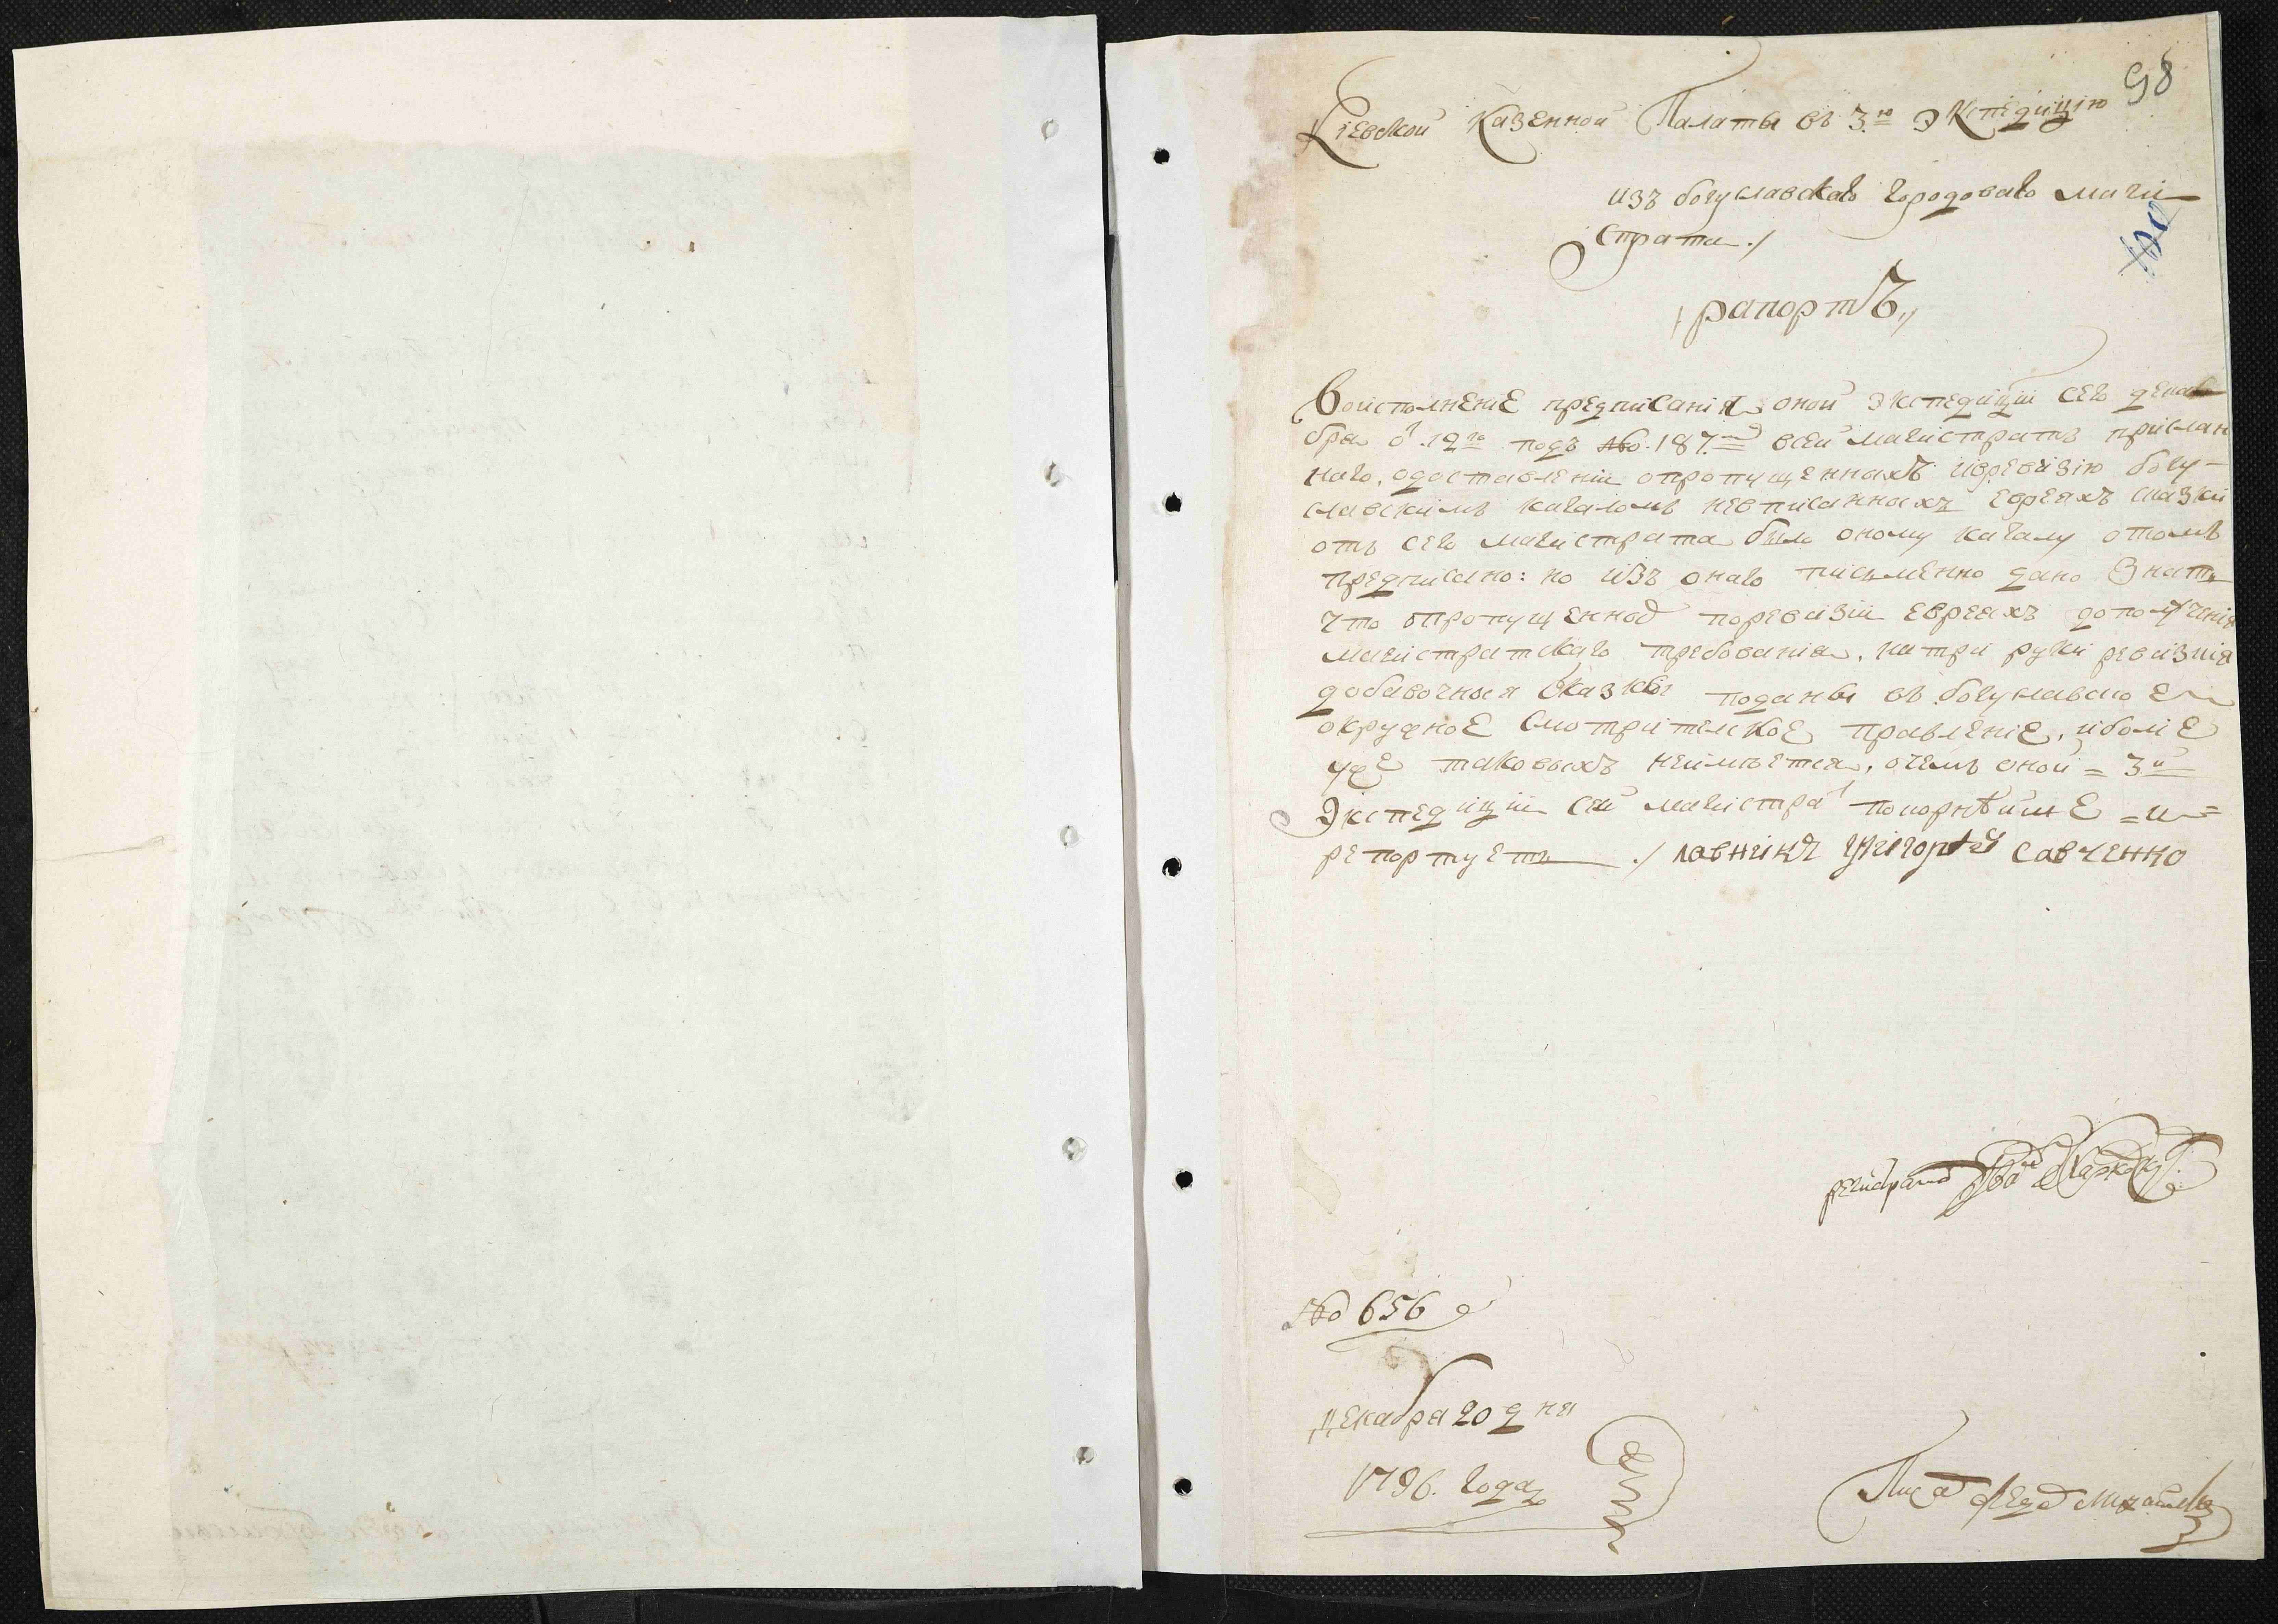 98
Кіевской Казенной Палаты въ 3ю Экспедицію
изъ богуславскаго городоваго маги
страта ./
рапортъ,,
Воисполненіе предписанія оной экспедиціи сего декаб
бря от 12го подъ №. 187.мъ всей магистратъ прислан
наго, одоставленіи опропущенныхъ иврѣвизію богу-
славскимъ кагаломъ невписанныхъ евреяхъ сказки
отъ сего магистрата было оному кагалу отомъ
предписано: но изъ онаго письменно дано знать
что опропущенных поревизіи евреяхъ дополученія
магистратскаго требованія, натри руки ревизкія
добавочныя сказки поданы въ богуславское
окружное смотрителское правленіе, иболіе
уже таковыхъ неимѣется, очемъ оной = 3й
Экспедиціи сей магистрат покорнѣйше =и=
репортуетъ ./ лавникъ григорей савченко
регистратор Иван
№ 656
декабря 20 дня
1796. года
Писар федор Михайлов